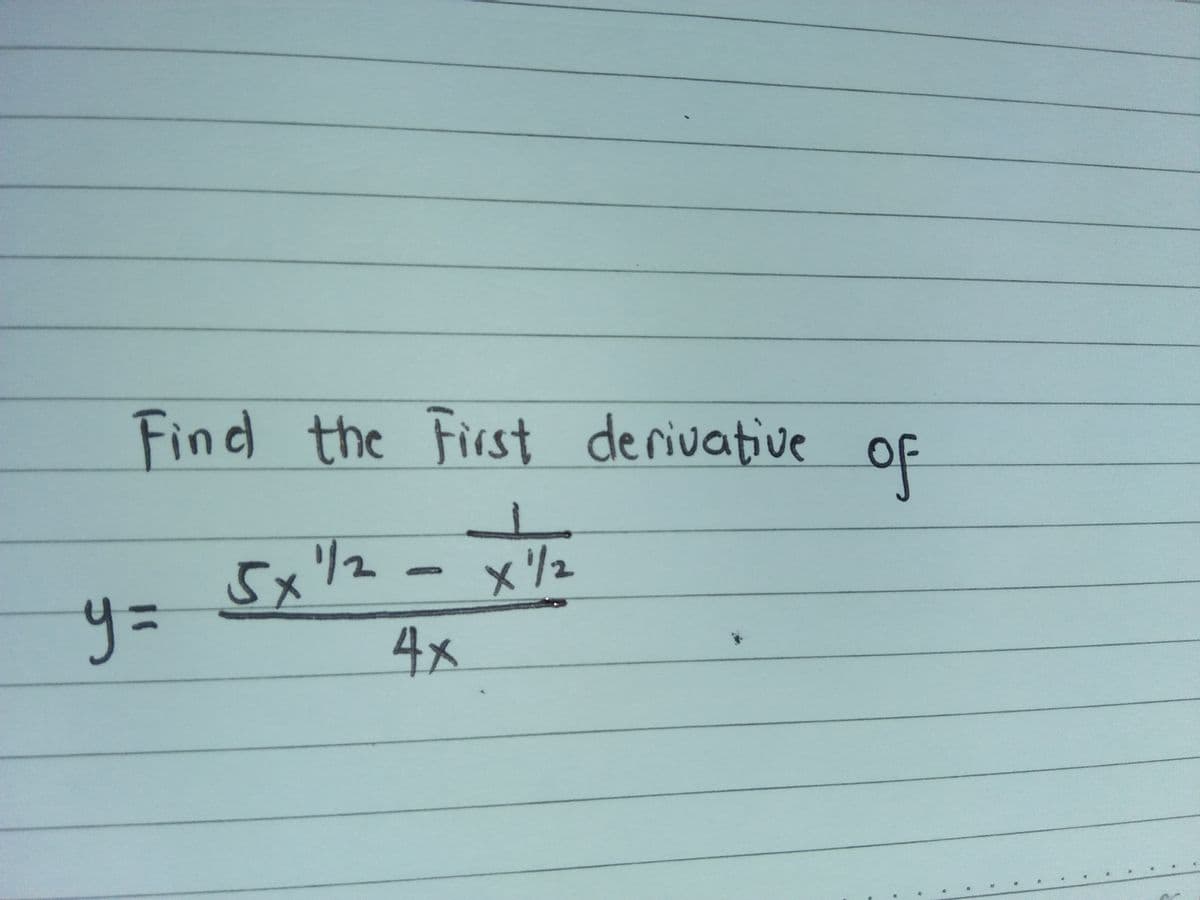 Find the First derivative of
y = (5x^1/2 - 1/x^1/2) / 4x